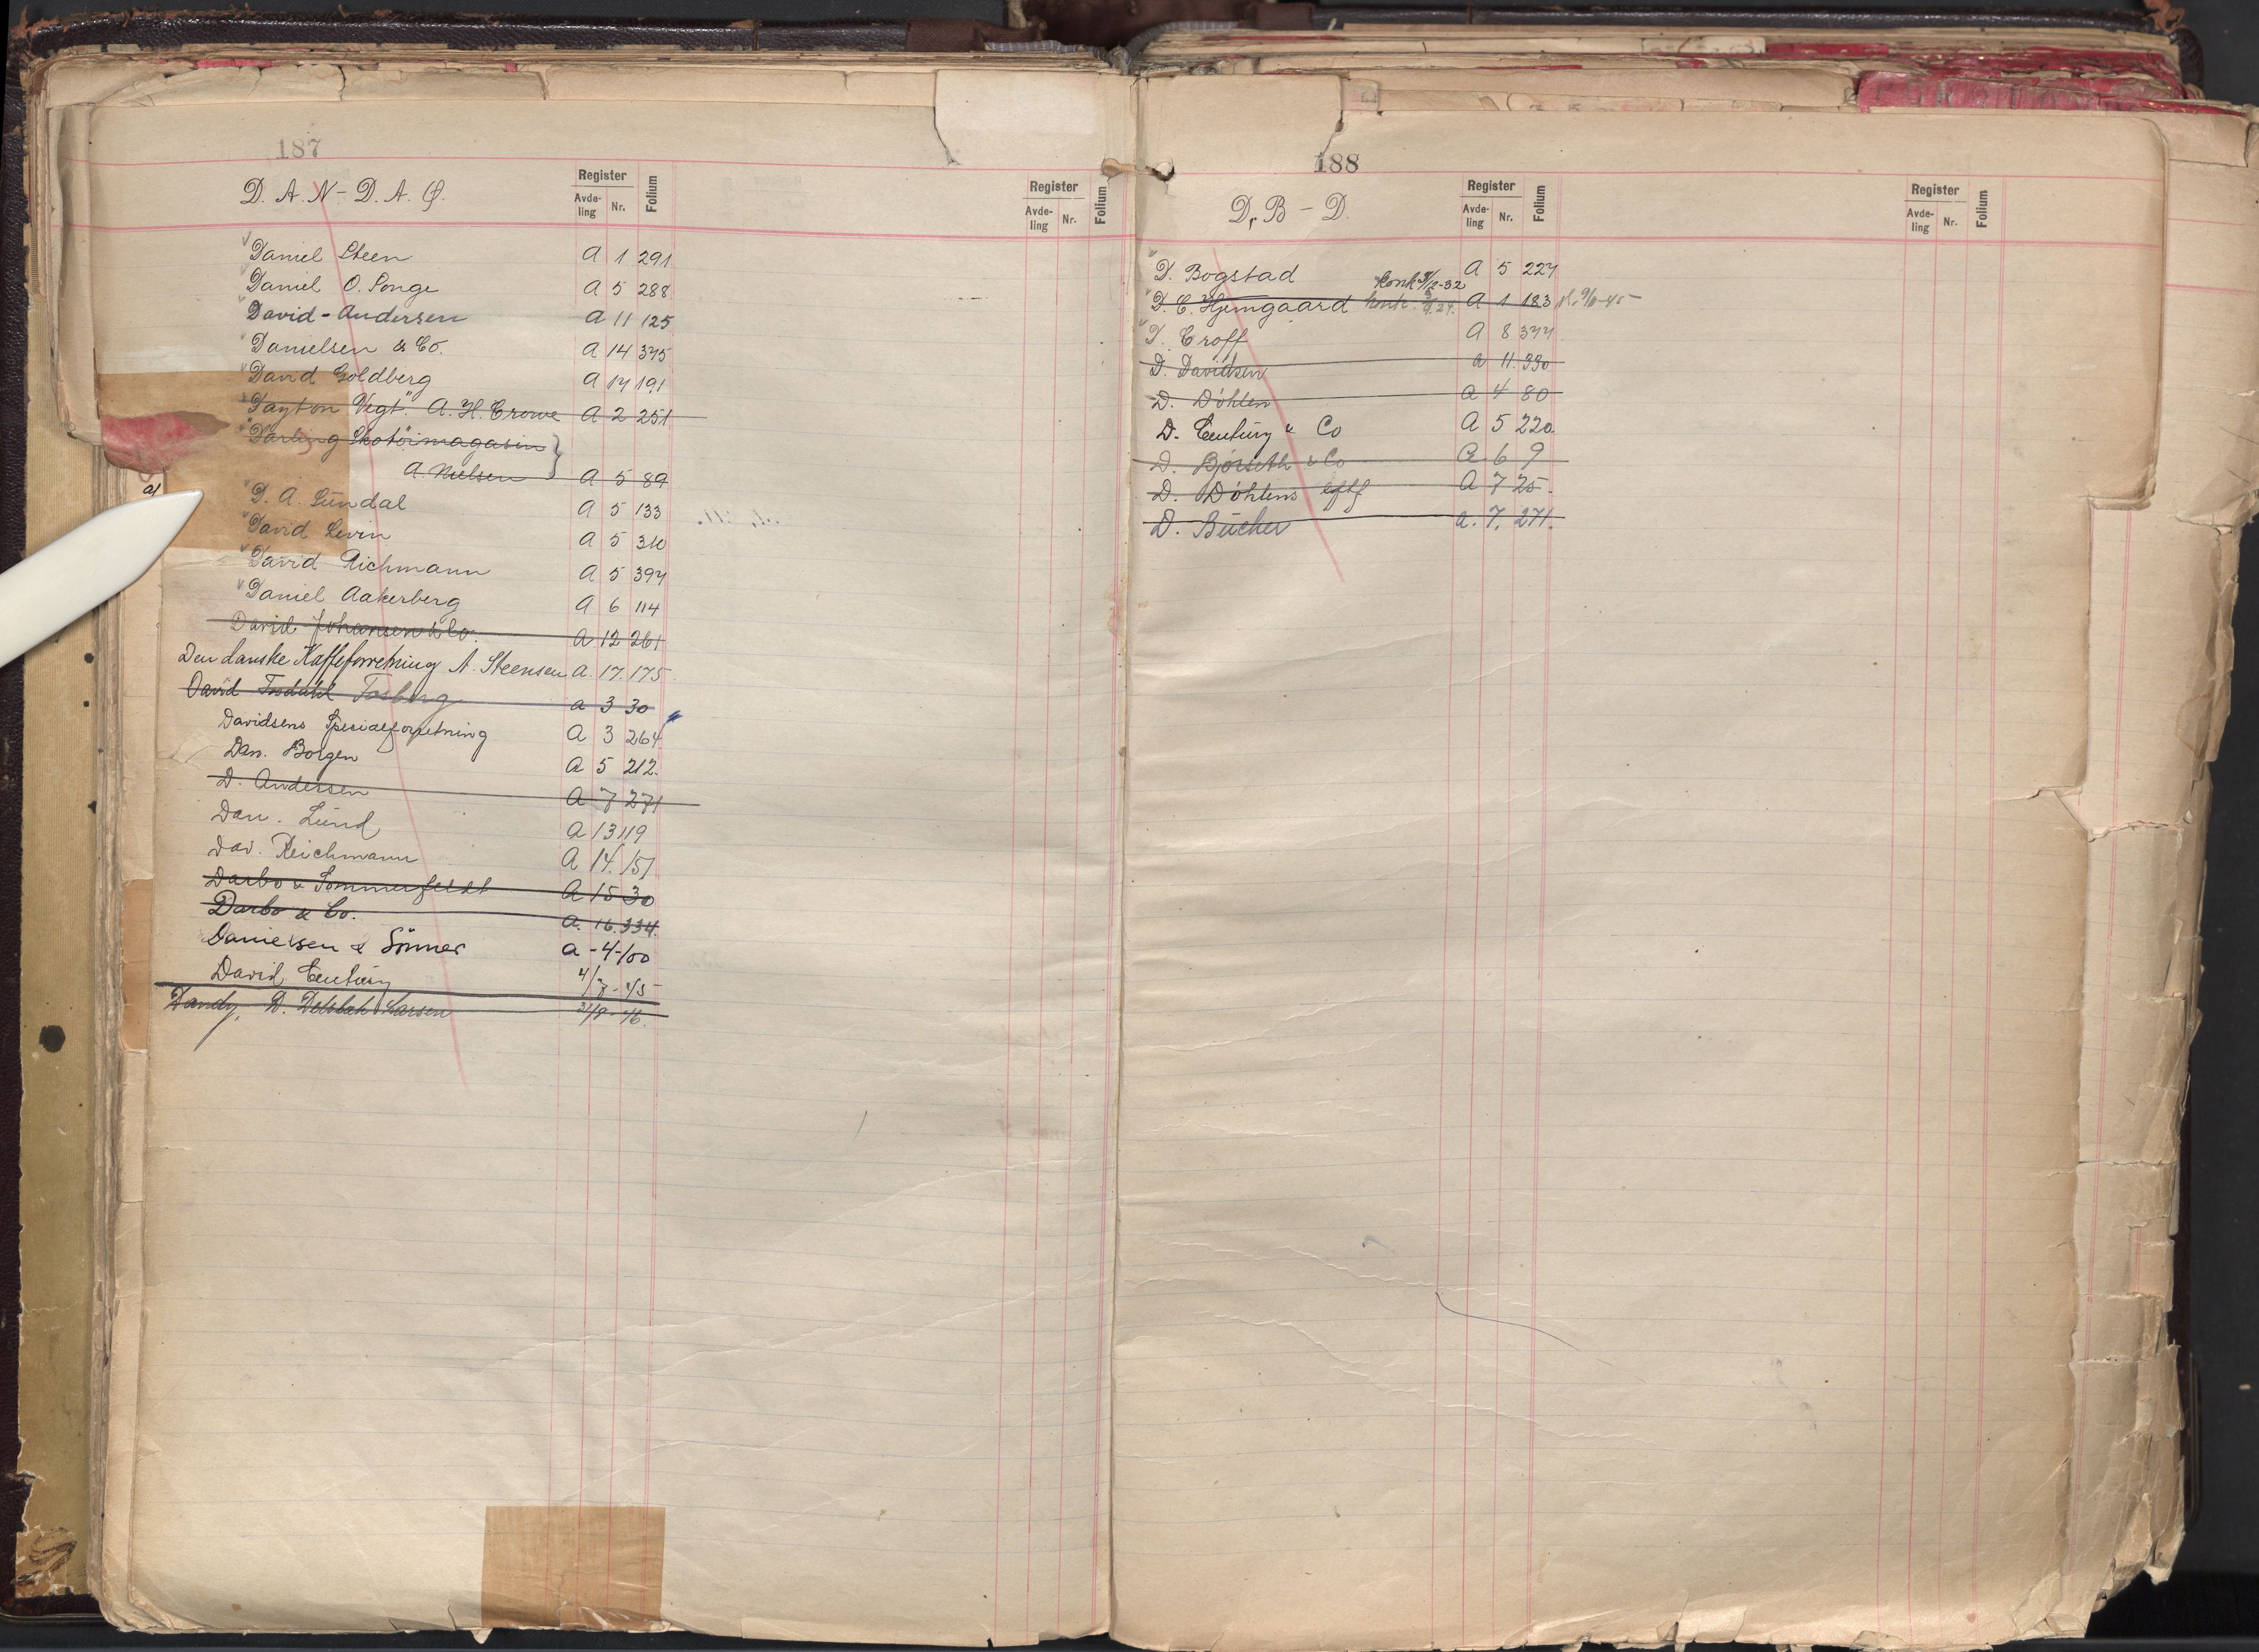 187
D. A. N - D. A. Ø.
Register
Avde-
ling
Nr.
Folium
Register
Avde-
ling
Nr.
Folium
Daniel Steen A 1 291
Daniel O. Ponge A 5 288
David-Andersen A 11 125
Danielsen & Co. A 14 375
David Goldberg A 14 191
"Dayton Vegt." A. H. Crowe A 2 251
Darling Skotöimagasin
A. Nielsen A 5 89
D. A. Sündal A 5 133
David Levin A 5 310
David Richmann A 5 394
Daniel Aakerberg A 6 114
David Johansen & Co. A 12 261
Den danske Kaffeforretning A. Steensen A. 17. 175
David Tosdahl Tosberg A 3 30
Davidsens Spesialforretning A 3 264
Dan. Borgen A 5 212.
D. Andersen A 7 271
Dan. Lünd A 13 119
Dav. Reichmann A 14. 151
Darbo & Sommerfeldt A 15 30
Darbo & Co. A. 16. 334.
Danielsen & Sönner a - 4 - 100
David Century 4/7 - 45
Dandy, D. Delsbak Larsen 31/8 - 46.
a/
188
D. B - D.
Register
Avde-
ling
Nr.
Folium
Register
Avde-
ling
Nr.
Folium
D. Bogstad A 5 224
D. C. Hjemgaard A 1 183
D. Croff A 8 344
D. Davidsen A 11. 330
D. Döhlen A 4 80
D. Century & Co A 5 220.
D. Bjørseth & Co A 6 9
D. Döhlens eftf A 7 25.
D. Bücher A. 7. 271.